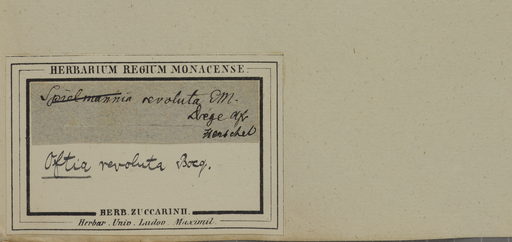 HERBARIUM REGIUM MONACENSE.
Spielmannia revoluta EM.
Drège
Henschel
Oftia revoluta Bocq.
HERB. ZUCCARINII.
Herbar. Univ. Ludov. Maximil.